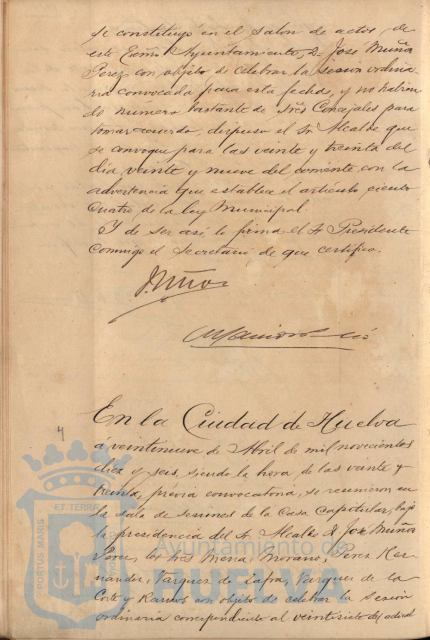 se constituyó en el salon de actos, de
este Excmo Ayuntamiento, D. José Muñoz
Perez con objeto de celebrar la sesion ordina
ria convocada para esta fecha, y no habien
do número bastante de Sres Concejales para
tomar acuerdo, dispuso el Sr. Alcalde que
se convoque para las veinte y treinta del
dia veinte y nueve del corriente con la
advertencia que establece el artículo ciento
cuatro de la Ley Municipal.
Y de ser así lo firma el Sr. Presidente
conmigo el Secretario de que certifico.
J. Muñoz
En la Ciudad de Huelva
á veintinueve de Abril de mil novecientos
diez y seis, siendo la hora de las veinte y
treinta, previa convocatoria, se reunieron en
la sala de sesiones de la Casa Capitular, bajo
la presidencia del Sr. Alcalde D. José Muñoz
Perez, los Sres Mena, Morano, Perez Her
nandez, Vazquez de Zafra, Vazquez de la
Corte y Ramos con objeto de celebrar la sesion
ordinaria correspondiente al veintisiete del actual
4
PORTUS MARIS ET TERRAE
Ayuntamiento de
HUELVA